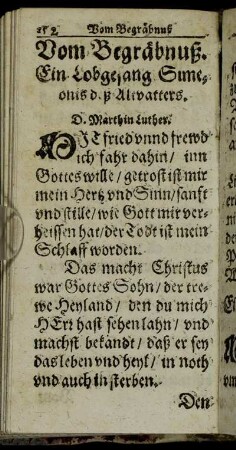 252 Vom Begräbnuß
Vom Begräbnuß.
Ein Lobgesang Sime⸗
onis deß Altvatters.
D. Marthin Luther.
MIT fried vnnd frewd
ich fahr dahin / inn
Gottes wille / getrost ist mir
mein Hertz vnd Sinn / sanfft
vnd stille / wie Gott mir ver⸗
heissen hat / der Todt ist mein
Schlaff worden.
Das macht Christus
war Gottes Sohn / der tre⸗
we Heyland / den du mich
HErr hast sehen lahn / vnd
machst bekandt / daß er sey
das leben vnd heyl / in noth
vnd auch in sterben.
Den